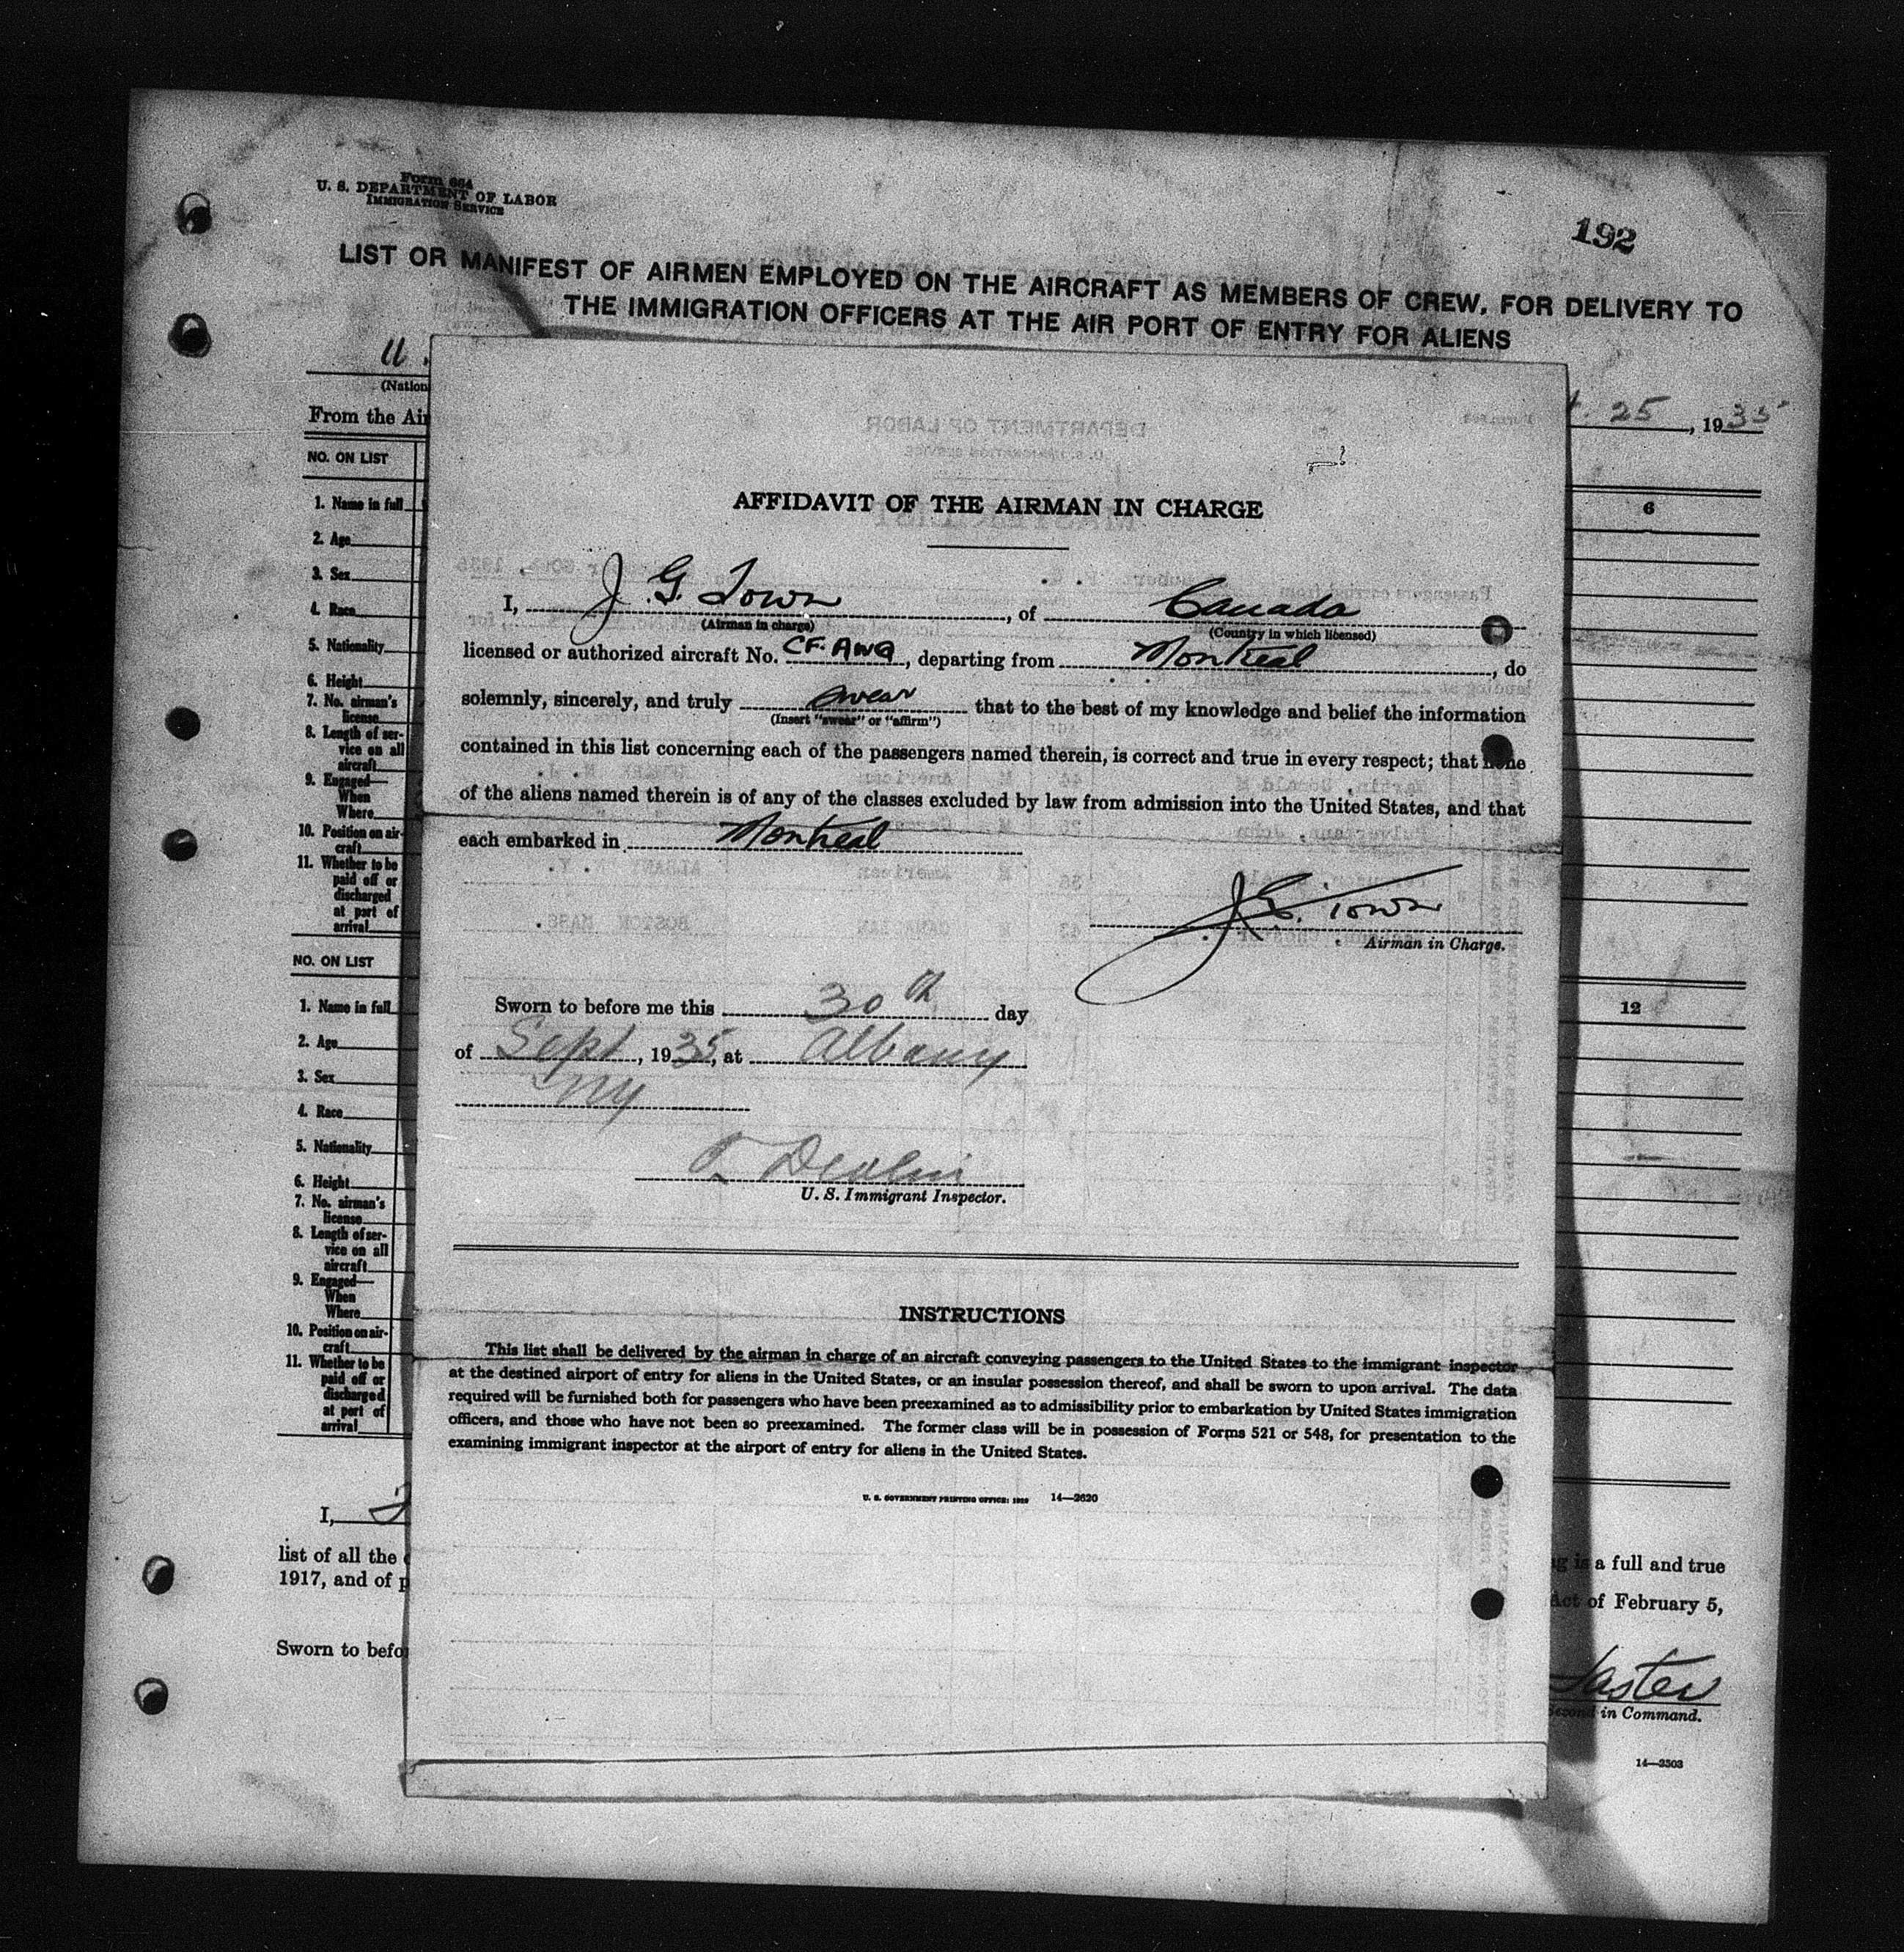 Form 664
U. S. DEPARTMENT OF LABOR
IMMIGRATION SERVICE
192
LIST OR MANIFEST OF AIRMEN EMPLOYED ON THE AIRCRAFT AS MEMBERS OF CREW, FOR DELIVERY TO
THE IMMIGRATION OFFICERS AT THE AIR PORT OF ENTRY FOR ALIENS
U.
(Nation
From the Air
25, 1935
NO. ON LIST
6
1. Name in full
2. Age
3. Sex
4. Race
5. Nationality
6. Height
7. No. airman's
license
8. Length of ser-
vice on all
aircraft
9. Engaged—
When
Where
10. Position on air-
craft
11. Whether to be
paid off or
discharged
at port of
arrival
NO. ON LIST
12
1. Name in full
2. Age
3. Sex
4. Race
5. Nationality
6. Height
7. No. airman's
license
8. Length of ser-
vice on all
aircraft
9. Engaged—
When
Where
10. Position on air-
craft
11. Whether to be
paid off or
discharged
at port of
arrival
I,
list of all the
is a full and true
1917, and of p
Act of February 5,
Sworn to befo
Second in Command.
14—2503
AFFIDAVIT OF THE AIRMAN IN CHARGE
I, J. G. Town, of Canada
(Airman in charge) (Country in which licensed)
licensed or authorized aircraft No. CF. AWG, departing from Montreal, do
solemnly, sincerely, and truly swear that to the best of my knowledge and belief the information
(Insert "swear" or "affirm")
contained in this list concerning each of the passengers named therein, is correct and true in every respect; that none
of the aliens named therein is of any of the classes excluded by law from admission into the United States, and that
each embarked in Montreal
J. G. Town
Airman in Charge.
Sworn to before me this 30th day
of Sept, 1935, at Albany
NY
Devlin
U. S. Immigrant Inspector.
INSTRUCTIONS
This list shall be delivered by the airman in charge of an aircraft conveying passengers to the United States to the immigrant inspector
at the destined airport of entry for aliens in the United States, or an insular possession thereof, and shall be sworn to upon arrival. The data
required will be furnished both for passengers who have been preexamined as to admissibility prior to embarkation by United States immigration
officers, and those who have not been so preexamined. The former class will be in possession of Forms 521 or 548, for presentation to the
examining immigrant inspector at the airport of entry for aliens in the United States.
U. S. GOVERNMENT PRINTING OFFICE: 1929 14—2620